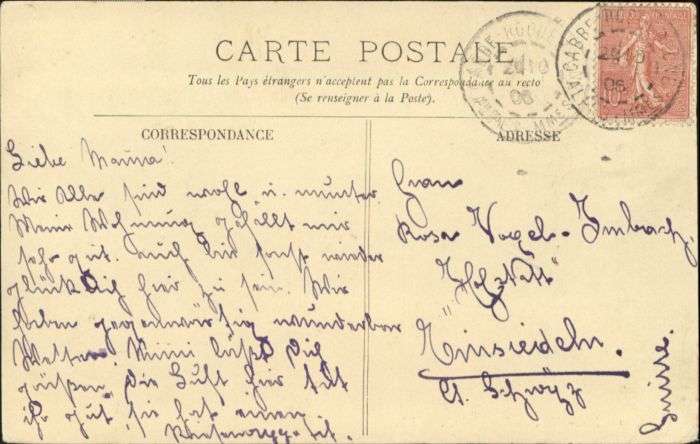 CARTE POSTALE
Tous les Pays étrangers n'acceptent pas la Correspondance au recto
(Se renseigner à la Poste).
CORRESPONDANCE
Liebe Mama!
Wir Alle sind wohl u. munter.
Meine Wohnung gefällt mir
sehr gut. Auch bin sonst wieder
glücklich hier zu sein. Wir
haben gegenwärtig wunderbar
Wetter. Mimi läßt Dich
grüßen. Die Luft hier tut
ihr gut, sie hat einen
ADRESSE
Frau
Rosa Vogel-Imbach
"Hofstatt"
Einsiedeln.
Ct. Schwyz
Suisse.
CABBE-ROQUE
24 10
06
CABBE-ROQUE
24 10
06